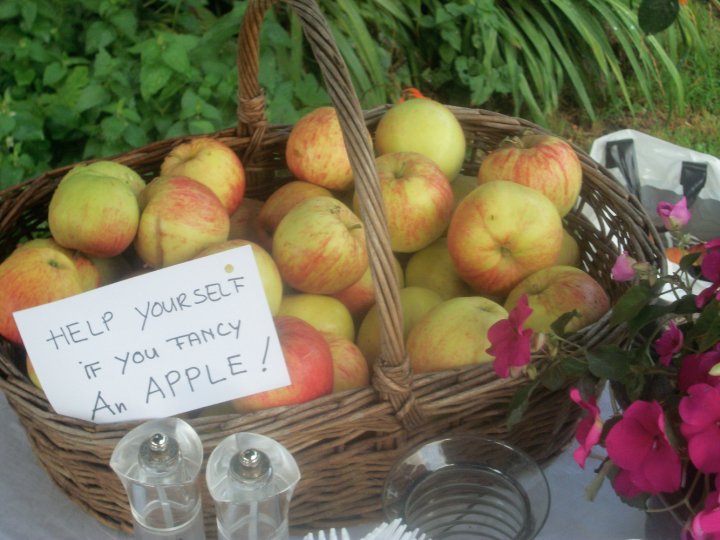 HELP YOURSELF
iF YOU FANCY
An APPLE!